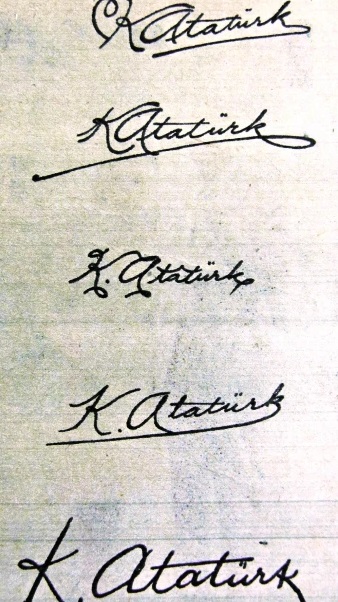 K Atatürk
K Atatürk
K. Atatürk
K. Atatürk
K. Atatürk